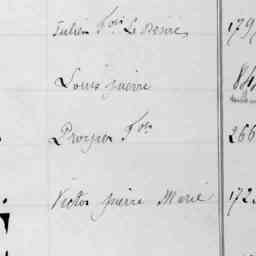 Julien Fois Le Desiré 179
Louis pierre 84
Prosper Fois 266
Victor pierre Marie 172